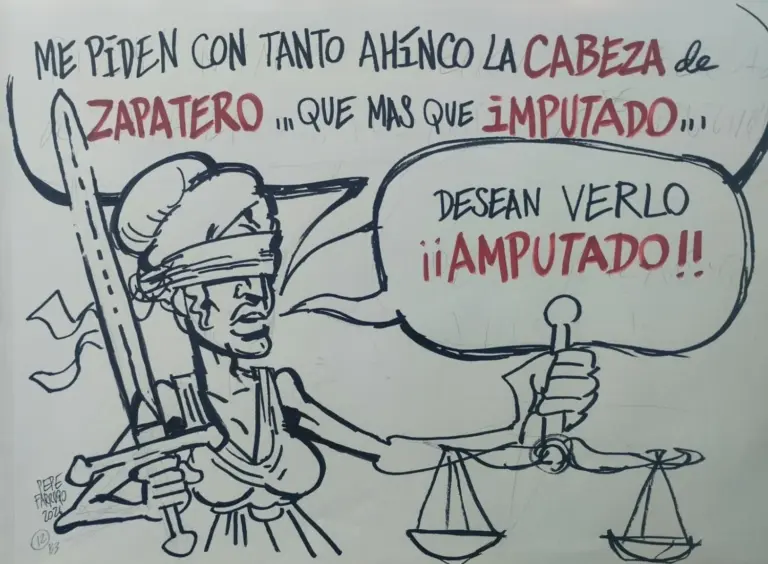 ME PIDEN CON TANTO AHÍNCO LA CABEZA de
ZAPATERO ... QUE MAS QUE IMPUTADO...
DESEAN VERLO
¡¡AMPUTADO!!
PEPE
FARRUQO